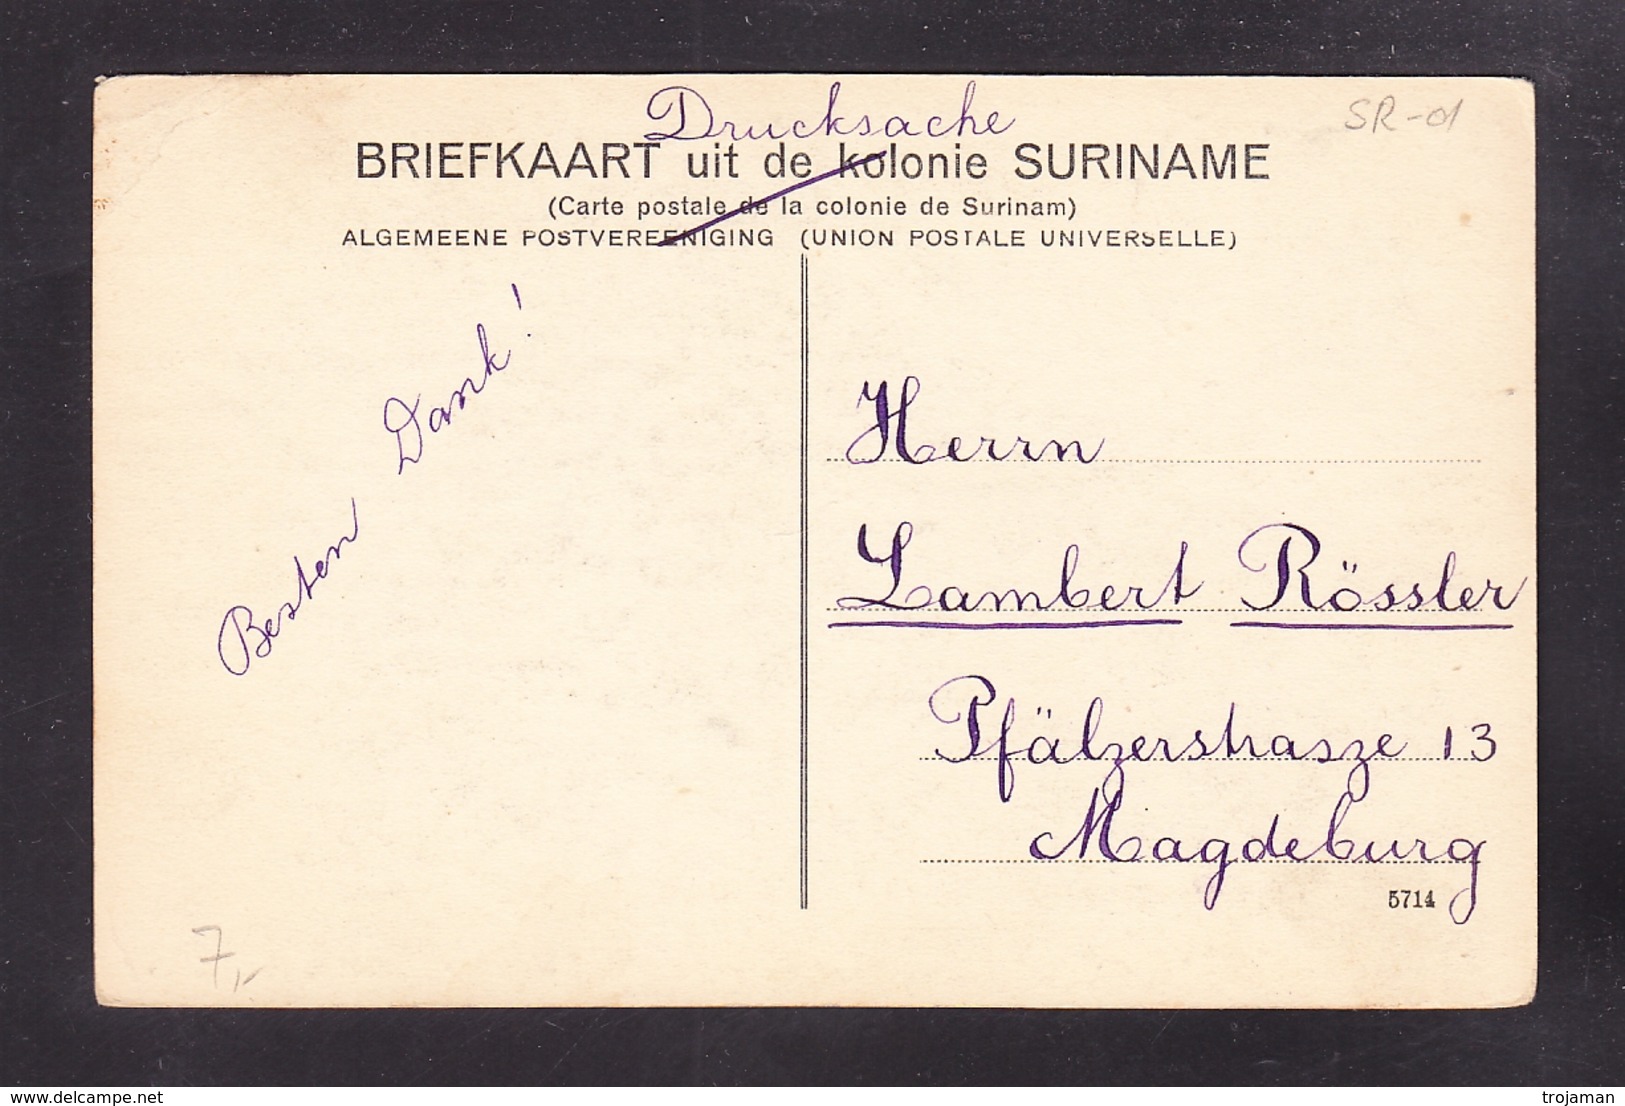 Drucksache
SR-01
BRIEFKAART uit de kolonie SURINAME
(Carte postale de la colonie de Surinam)
ALGEMEENE POSTVEREENIGING (UNION POSTALE UNIVERSELLE)
Besten Dank!
Herrn
Lambert Rössler
Pfälzerstrasze 13
Magdeburg
5714
7,-
delcampe.net
trojaman